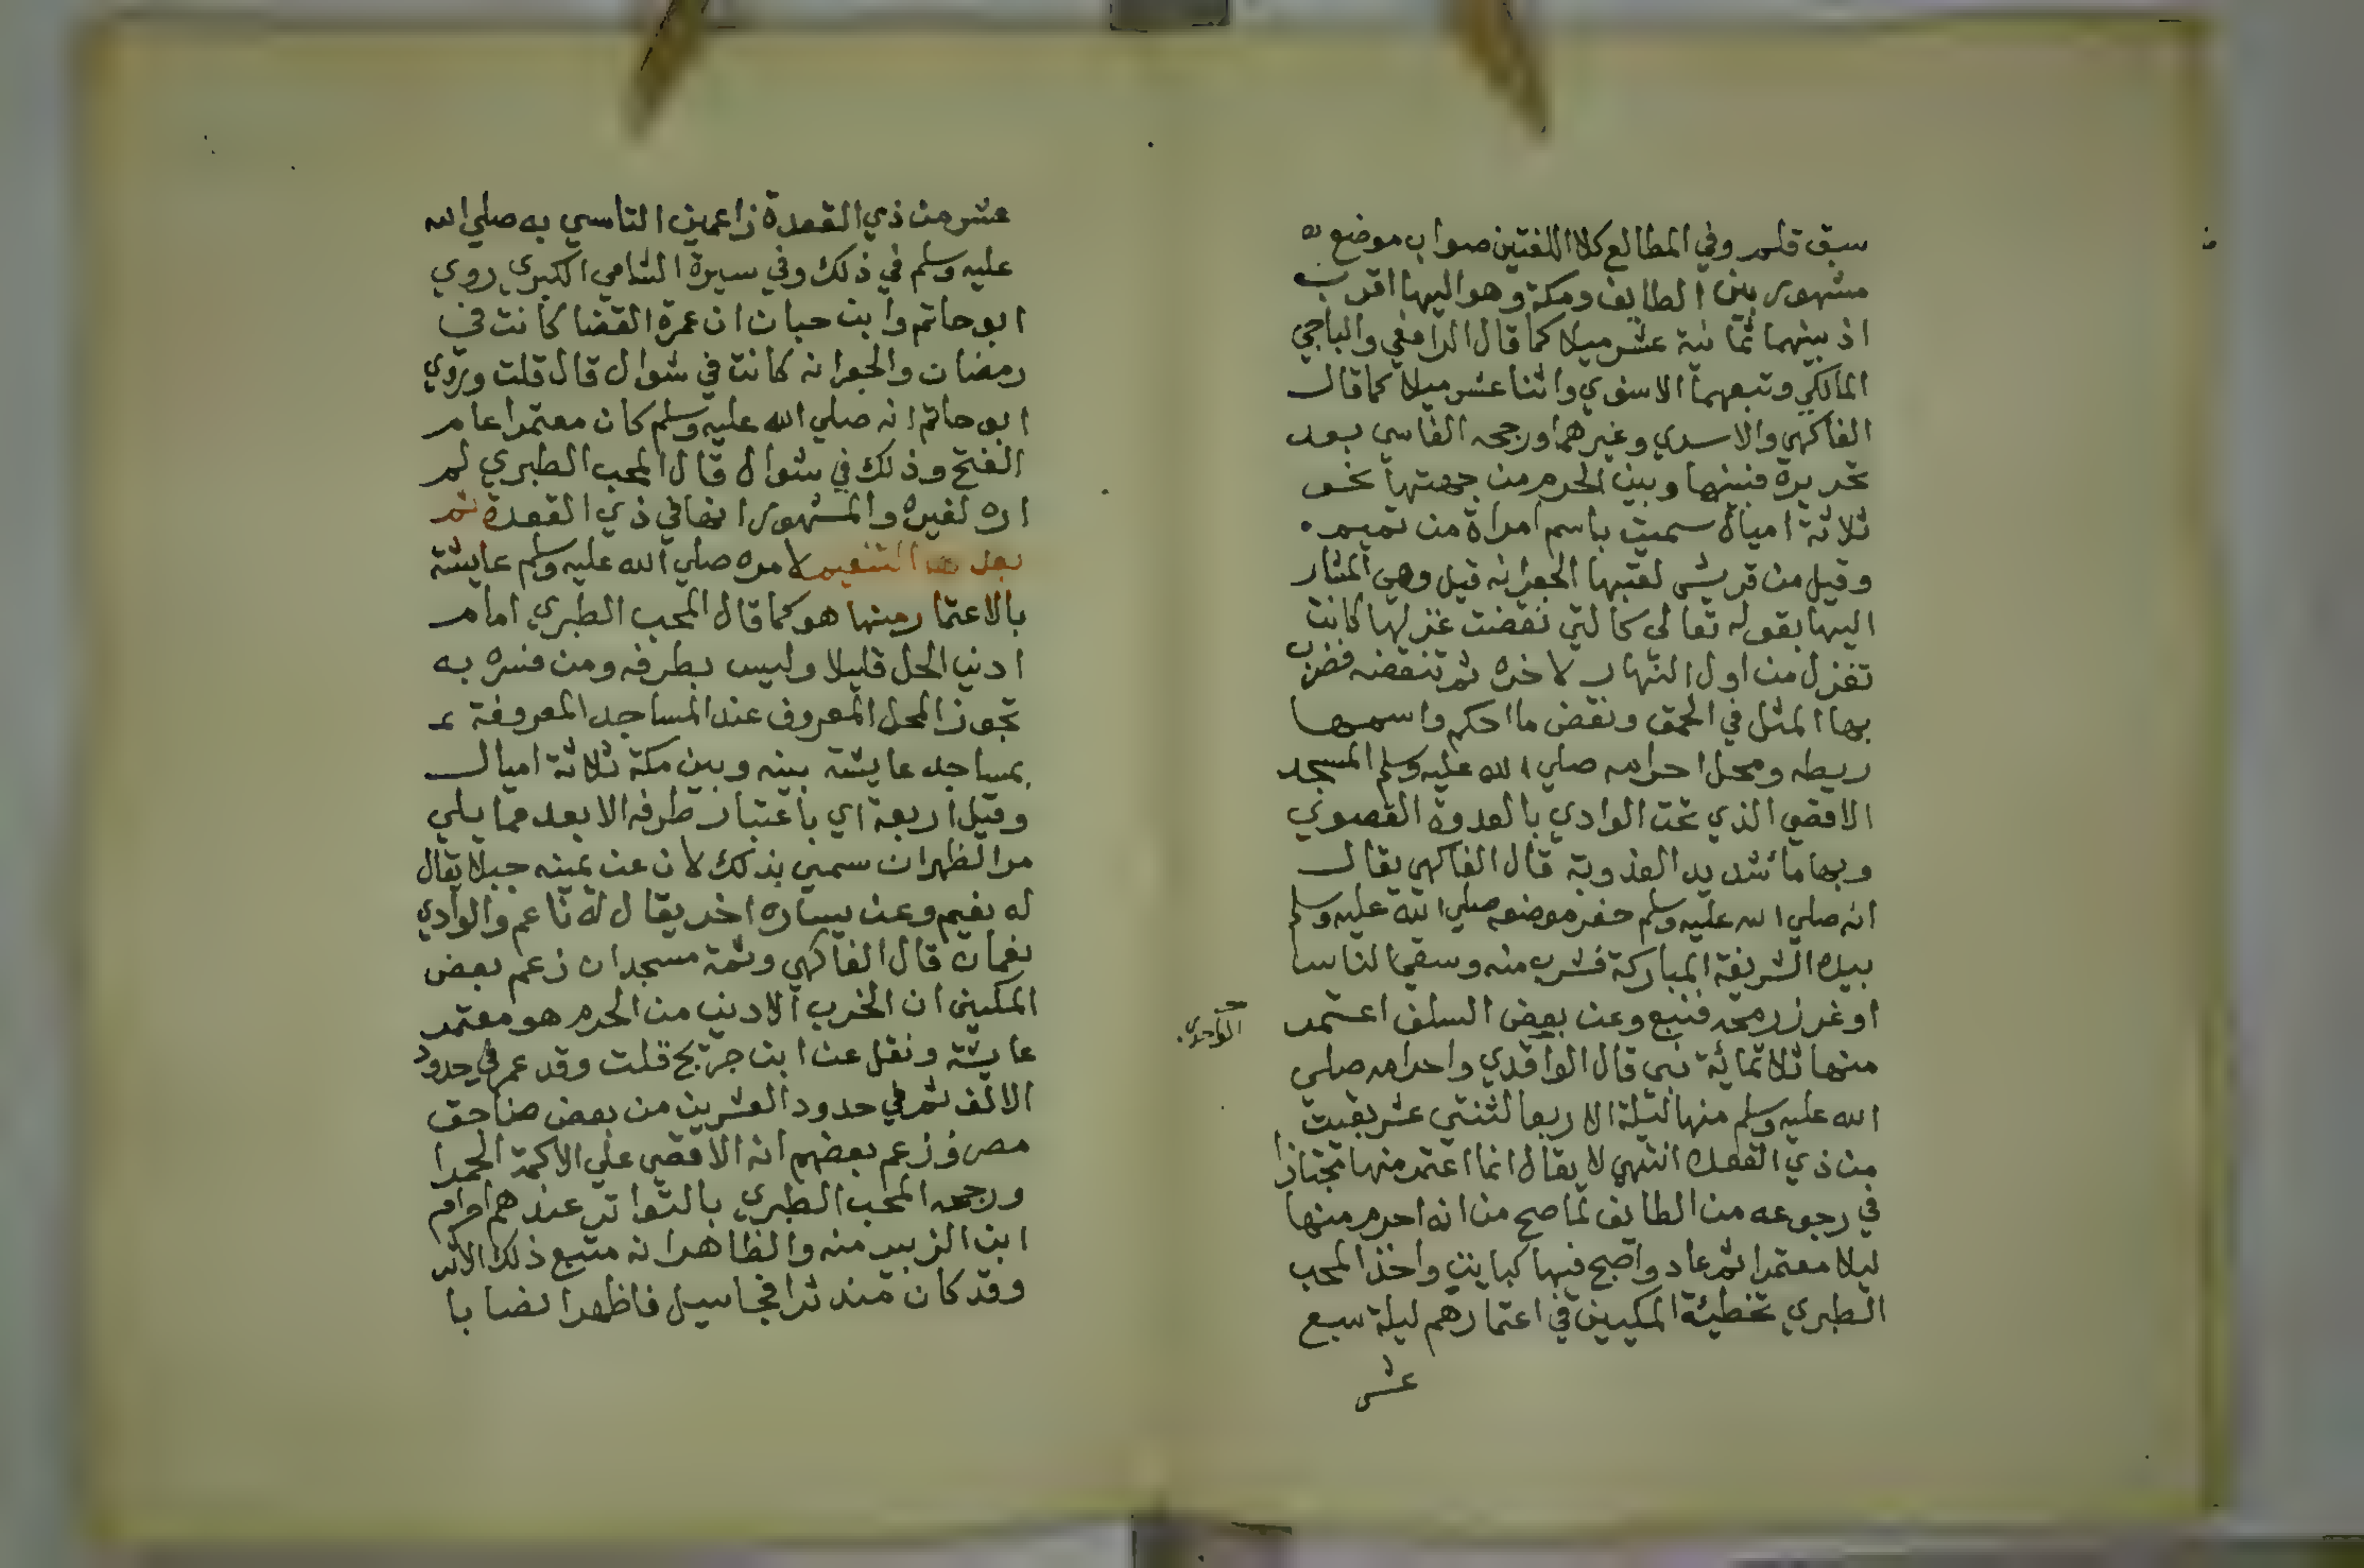 سبق قلم وفي المطالع كلا اللغتين صواب موضع
مشهور بين الطايف ومكة وهو اليها اقرب
اذ بينهما ثمانية عشر ميلا كما قال الرافعي والباجي
المالكي وتبعهما الاسنوي واثنا عشر ميلا كما قال
الفاكهي والاسدي وغيرهما ورجحه الفاسي بعد
تحديره فبينها وبين الحرم من جهتها نحو
ثلاثة اميال سميت باسم امراة من تميم
وقيل من قريش لقبها الجعرانه قيل وهي المشار
اليها بقوله تعالى كالتي نقضت غزلها كانت
تغزل من اول النهار لاخره ثم تنقضه فضرب
بها المثل في الحمق ونقض ما احكم واسمها
ريطه ومحل احرامه صلي الله عليه وسلم المسجد
الاقصي الذي تحت الوادي بالعدوة القصوي
وبها ما شديد العذوبة قال الفاكهي يقال
انه صلي الله عليه وسلم حفر موضعه صلي الله عليه وسلم
بيده الشريفة المباركة فشرب منه وسقي الناس
او غرز رمحه فنبع وعن بعض السلف اعتمر
منها ثلاثمائة نبي قال الواقدي واحرامه صلي
الله عليه وسلم منها ليلة الاربعا لثنتي عشر بقيت
من ذي القعده انتهي لا يقال انما اعتمر منها مجتازا
في رجوعه من الطايف لما صح من انه احرم منها
ليلا معتمرا ثم عاد واصبح فيها كبايت واخذ المحب
الطبري تخطيئة المكيين في اعتمارهم ليلة سبع
عشر
الواحدي
عشر من ذي القعدة زاعمين التاسي به صلي الله
عليه وسلم في ذلك وفي سيرة الشامي الكبري روي
ابو حاتم وابن حبان ان عمرة القضا كانت في
رمضان والجعرانه كانت في شوال قال قلت وروي
ابو حاتم انه صلي الله عليه وسلم كان معتمرا عام
الفتح وذلك في شوال قال المحب الطبري لم
اره لغيره والمشهور انها في ذي القعدة ثم
بعد التنعيم لامره صلي الله عليه وسلم عايشة
بالاعتمار منها هو كما قال المحب الطبري امام
ادني الحل قليلا وليس بطرفه ومن فسره به
تجوز المحل المعروف عند المساجد المعروفة
بمساجد عايشة بينه وبين مكة ثلاثة اميال
وقيل اربعة اي باعتبار طرفه الابعد مما يلي
مر الظهران سمي بذلك لان عن يمينه جبلا يقال
له نعيم وعن يساره اخر يقال له ناعم والوادي
نعمان قال الفاكهي وثمة مسجدان زعم بعض
المكيين ان الخرب الادني من الحرم هو معتمر
عايشة ونقل عن ابن جريج قلت وقد عمر في حدود
الالف ثم في حدود العشرين من بعض صناجق
مصر وزعم بعضهم انه الاقصي علي الاكمة الحمرا
ورجحه المحب الطبري بالتواتر عندهم احرام
ابن الزبير منه والظاهر انه متبع ذلك الاثر
وقد كان مندثرا فجا سيل فاظهر انصابا